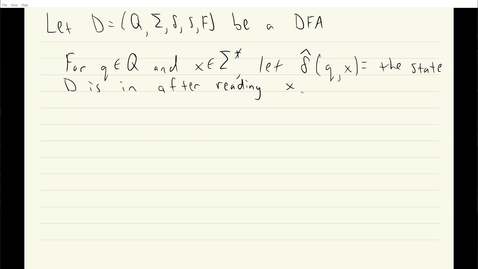 Let D=(Q, Σ, δ, s, F) be a DFA
For q∈Q and x∈Σ*, let δ̂(q,x)= the state
D is in after reading x.